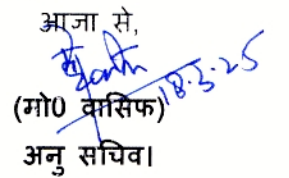 आज्ञा से,
18.3.25
(मो0 वासिफ)
अनु सचिव।